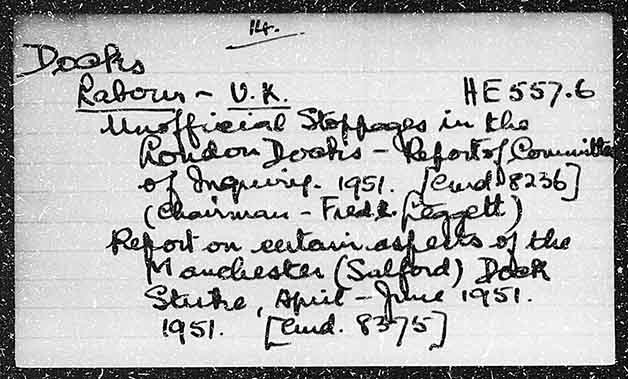 14.
Docks
Labour - U.K. HE557.6
Unofficial Stoppages in the
London Docks - Report of Committee
of Inquiry. 1951. [Cmd. 8236]
(Chairman - Fredk. Leggett)
Report on certain aspects of the
Manchester (Salford) Dock
Strike, April - June 1951.
1951. [Cmd. 8375]